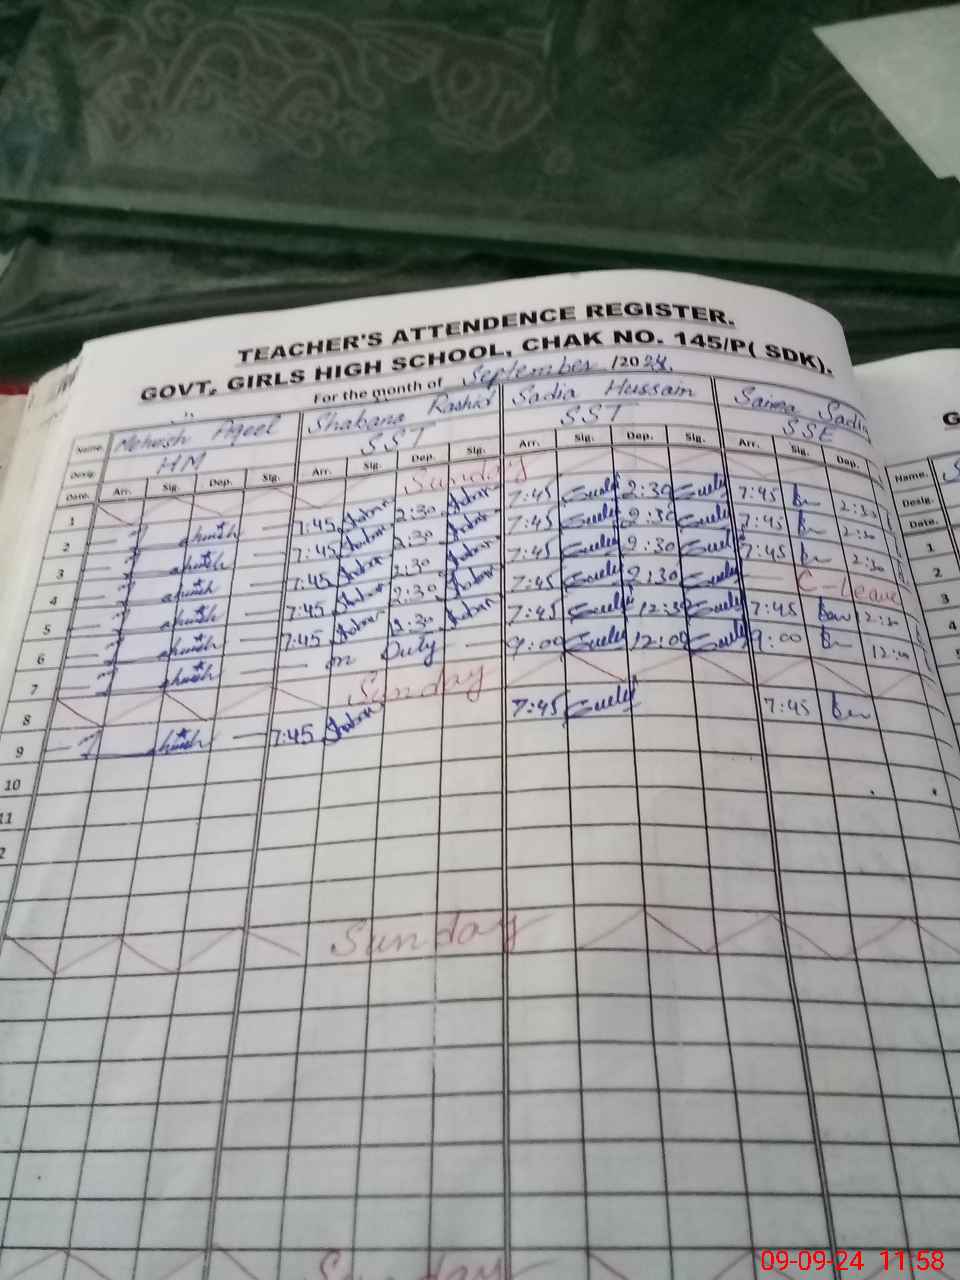 TEACHER'S ATTENDENCE REGISTER.
GOVT. GIRLS HIGH SCHOOL, CHAK NO. 145/P( SDK).
For the month of September /2024.
Name. Mehwish Aqeel Shabana Rashid Sadia Hussain Saima Sadiq
Desig. HM SST SST SSE
Date. Arr. Sig. Dep. Sig. Arr. Sig. Dep. Sig. Arr. Sig. Dep. Sig. Arr. Sig. Dep.
1 Sunday
2 7:45 2:30 7:45 2:30 7:45 2:30
3 7:45 2:30 7:45 2:30 7:45 2:30
4 7:45 2:30 7:45 2:30 7:45 2:30
5 7:45 2:30 7:45 2:30 C-Leave
6 7:45 7:45 12:30 7:45
7 on Duty 9:00 12:00 9:00 12:00
8 Sunday
9 7:45 7:45 7:45
10
11
2
Sunday
Sunday
G
Name. S
Desig.
Date.
1
2
3
4
5
09-09-24 11:58